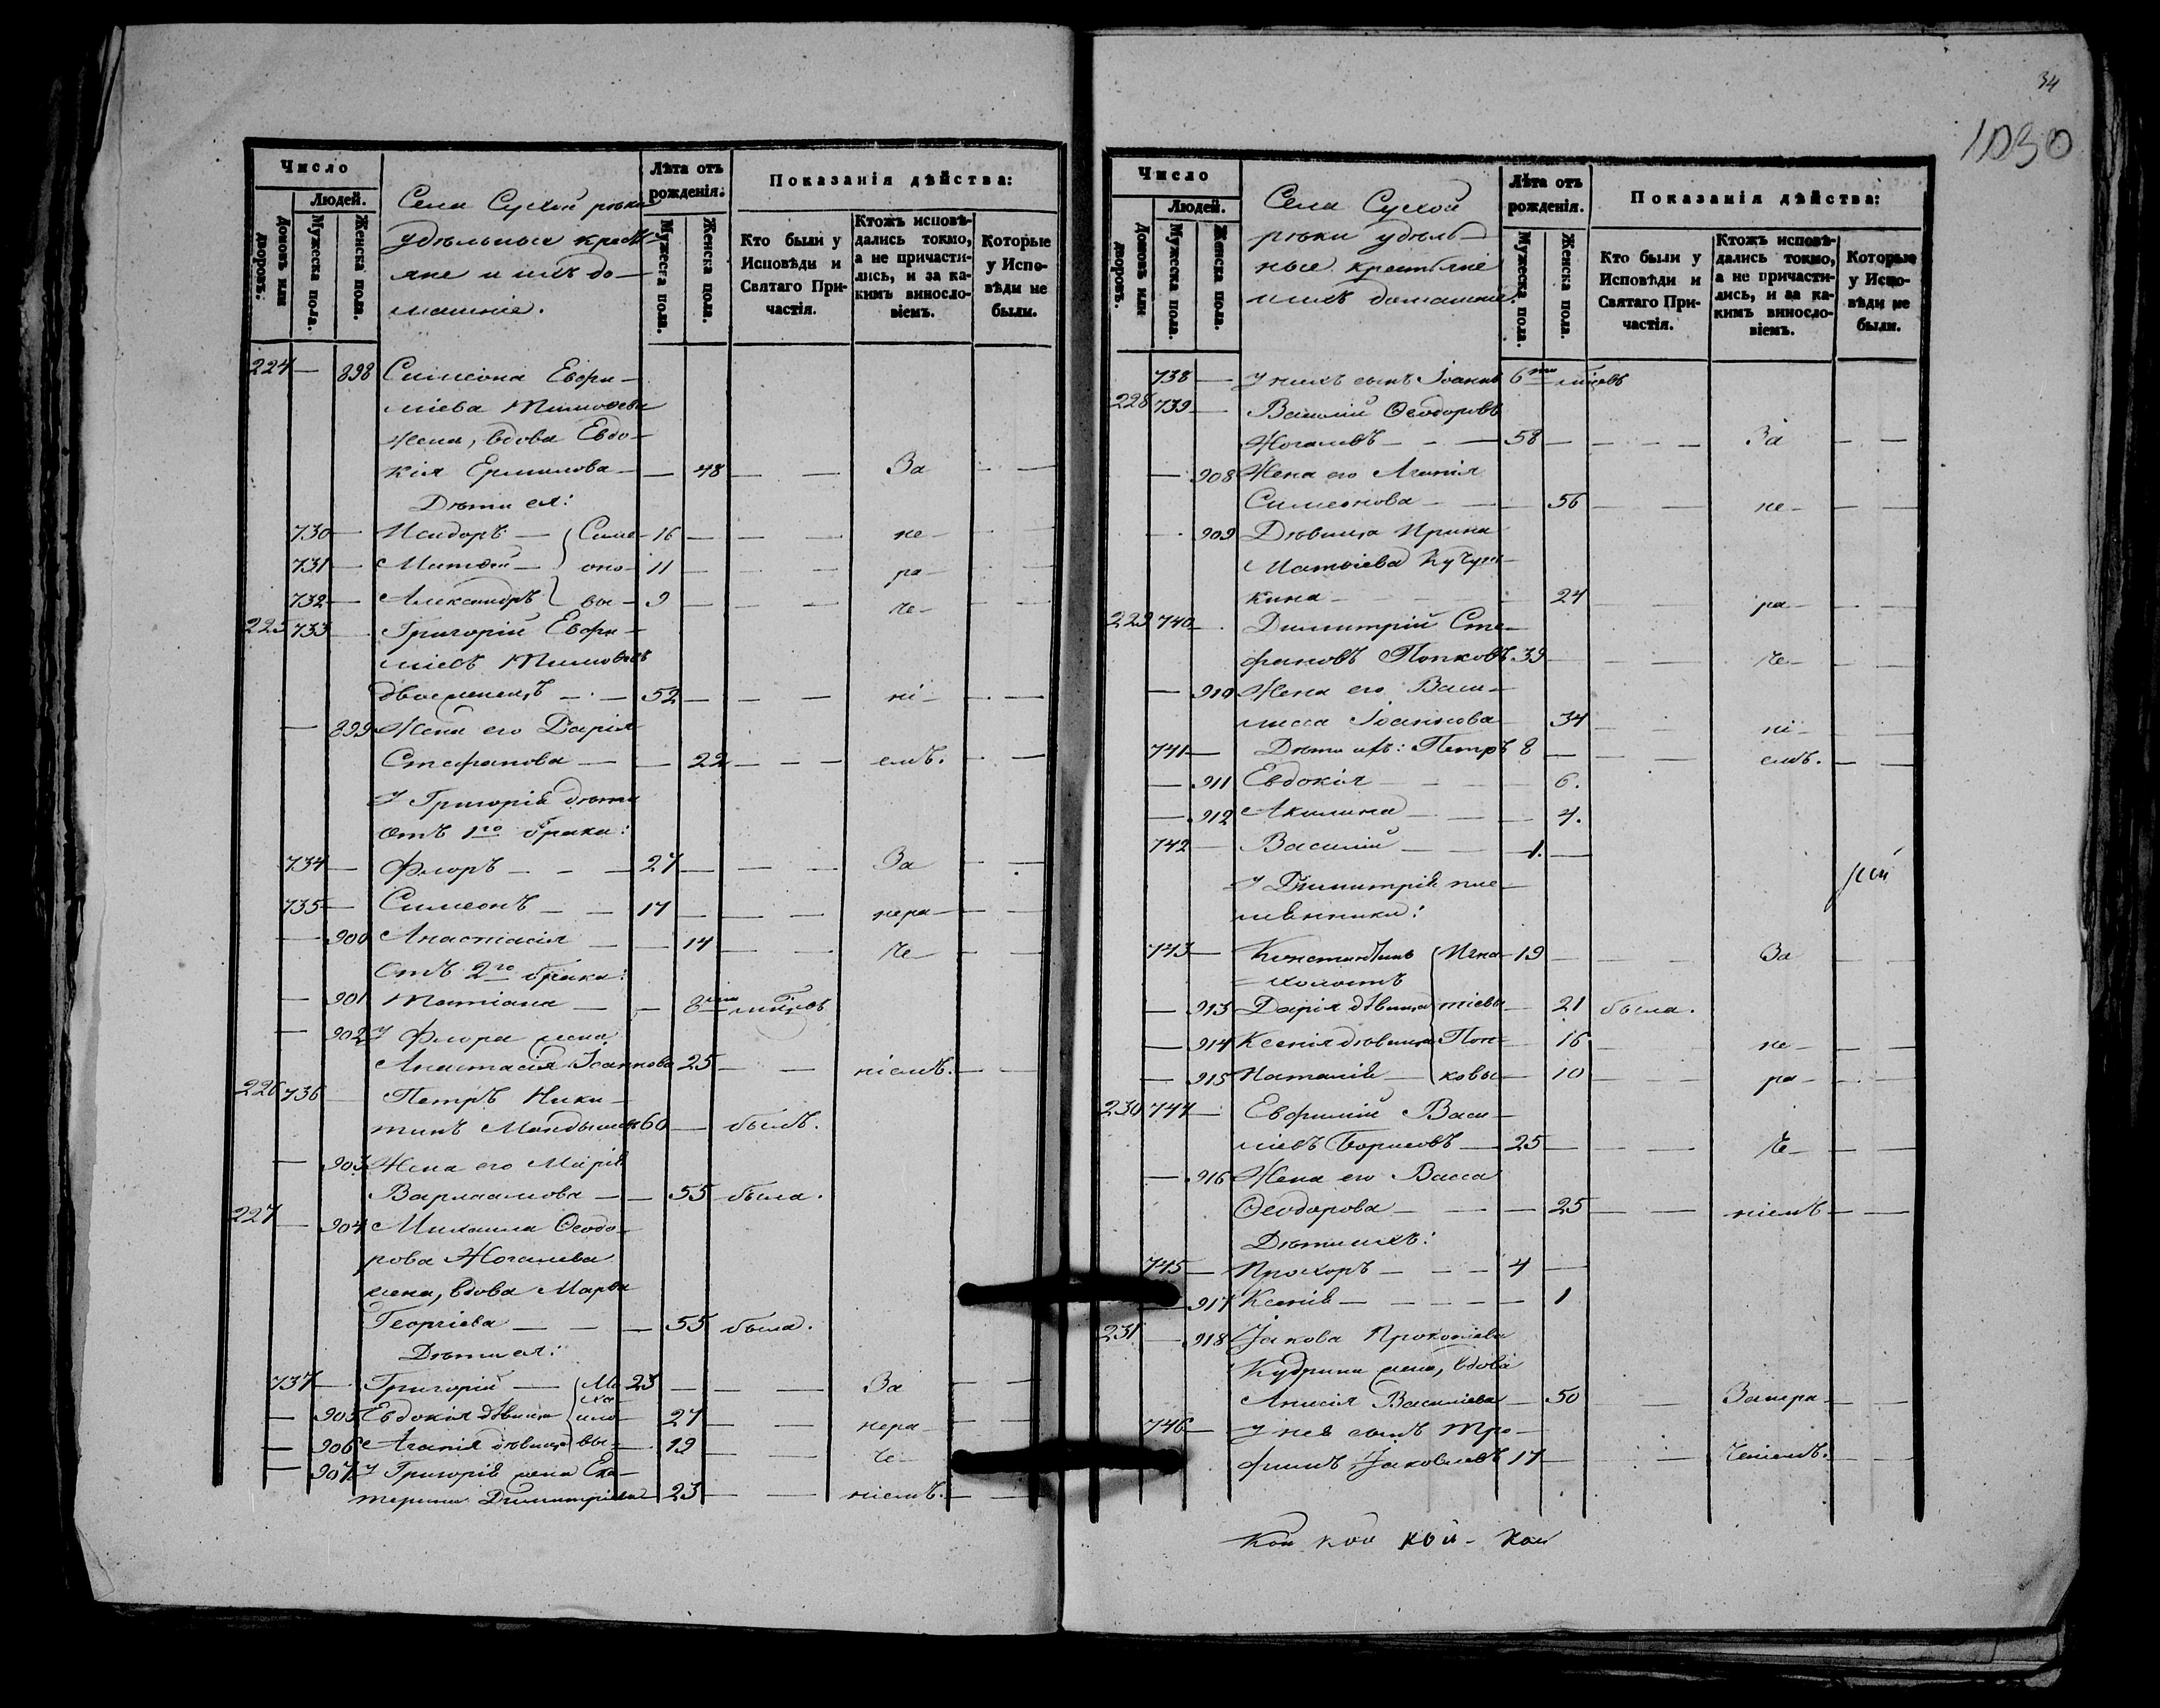 34
1030
Число
Людей.
Домовъ или дворовъ.
Мужеска пола.
Женска пола.
Села Сухой рѣки
удѣльные кресть-
яне и ихъ до-
машніе.
Лѣта отъ рожденія.
Мужеска пола.
Женска пола.
Показанія дѣйства:
Кто были у Исповѣди и Святаго Причастія.
Ктожъ исповѣдались токмо, а не причастились, и за какимъ винословіемъ.
Которые у Исповѣди не были.
224 — 898 Симеона Евфи-
міева Тимоѳева
жена, вдова Евдо-
кія Ермилова — 48 — За
Дѣти ея:
730 — Исидоръ — Симе- 16 — не-
731 — Матѳей — оно- 11 — ра-
732 — Александръ вы — 9 — че-
225 733 — Григорій Евфи-
міевъ Тимоѳеевъ
двоеженецъ — 52 — ні-
— 899 Жена его Дарія
Стефанова — 22 — емъ.
У Григорія дѣти
отъ 1го брака:
734 — Флоръ — 27 — За
735 — Симеонъ — 17 — нера-
— 900 Анастасія — 14 — че-
Отъ 2го брака:
— 901 Татіана — 8
— 902 У Флора жена
Анастасія Іоаннова 25 — ніемъ.
226 736 Петръ Ники-
тинъ 60 — былъ.
— 903 Жена его Марія
Варлаамова — 55 была.
227 — 904 Михаила Ѳеодо-
рова Жогалева
жена, вдова Марѳа
Георгіева — 55 была.
Дѣти ея:
737 — Григорій — Ми 23 — За
ха
— 905 Евдокія дѣвица ило- 27 — нера-
— 906 Агапія дѣвица вы — 19 — че-
— 907 У Григорія жена Ека-
терина Димитріева 23 — ніемъ.
Число
Людей.
Домовъ или дворовъ.
Мужеска пола.
Женска пола.
Села Сухой
рѣки удѣль-
ные крестьяне
и ихъ домашніе.
Лѣта отъ рожденія.
Мужеска пола.
Женска пола.
Показанія дѣйства:
Кто были у Исповѣди и Святаго Причастія.
Ктожъ исповѣдались токмо, а не причастились, и за какимъ винословіемъ.
Которые у Исповѣди не были.
738 — У нихъ сынъ Іоаннъ 6
228 739 — Василій Ѳеодоровъ
Жогалевъ — 58 — За
— 908 Жена его Агапія
Симеонова — 56 — не-
— 909 Дѣвица Ирина
Матвіева Кучум-
кина — 24 — ра-
229 740 — Димитрій Сте-
фановъ Попковъ 39 — че-
— 910 Жена его Васи-
лисса Іоаннова — 34 — ні-
741 — Дѣти ихъ: Петръ 8 — емъ.
— 911 Евдокія — 6.
— 912 Акилина — 4.
742 — Василій — 1.
У Димитрія пле-
мянники:
743 — Константинъ Игна- 19 — За
холостъ
— 913 Дарія дѣвица тіевы 21 была.
— 914 Ксенія дѣвица Поп- 16 — не-
— 915 Наталія — ковы — 10 — ра-
230 744 — Евфимій Васи-
ліевъ Борисовъ — 25 — че-
— 916 Жена его Васса
Ѳеодорова — 25 — ніемъ
Дѣти ихъ:
745 — Прохоръ — 4
— 917 Ксенія — 1
231 — 918 Іакова Прокопіева
Кудрина жена, вдова
Анисія Василіева — 50 — Занера-
746 — У нея сынъ Тро-
фимъ Іаковлевъ 17 — ченіемъ.
кои кои кои - кои